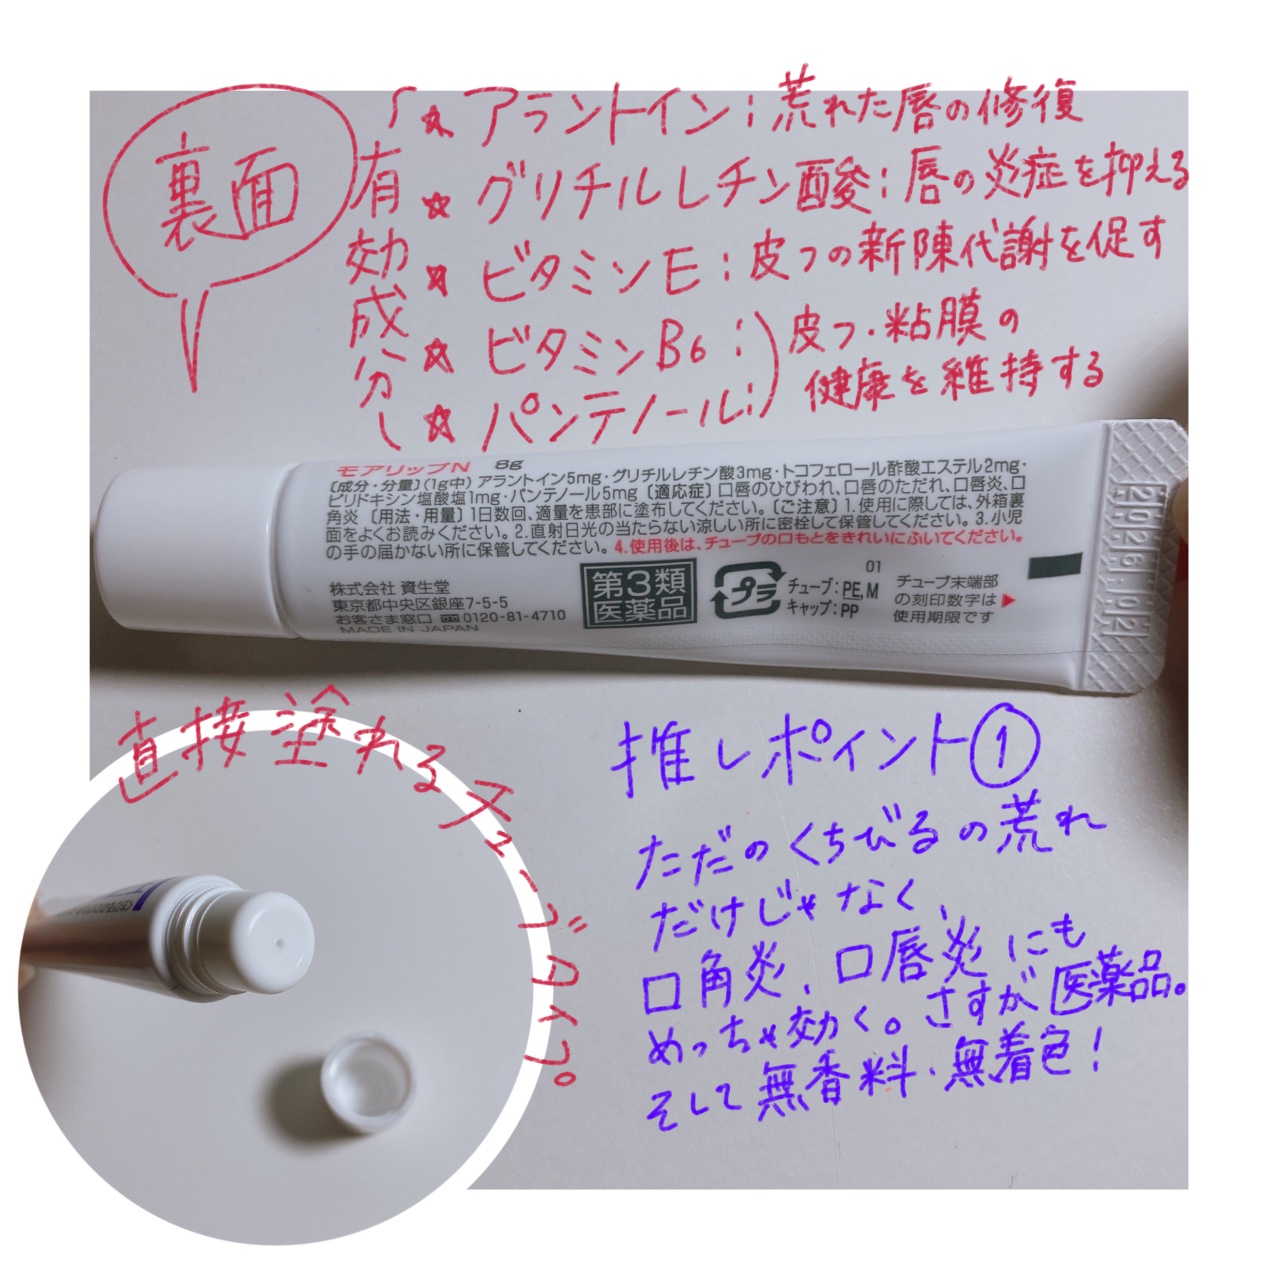 裏面
「有効成分」
☆アラントイン：荒れた唇の修復
☆グリチルレチン酸：唇の炎症を抑える
☆ビタミンE：皮フの新陳代謝を促す
☆ビタミンB6：
☆パンテノール：
皮フ・粘膜の
健康を維持する
モアリップN 8g
〔成分・分量〕(1g中) アラントイン5mg・グリチルレチン酸3mg・トコフェロール酢酸エステル2mg・
ピリドキシン塩酸塩1mg・パンテノール5mg〔適応症〕口唇のひびわれ、口唇のただれ、口唇炎、口
角炎〔用法・用量〕1日数回、適量を患部に塗布してください。〔ご注意〕1.使用に際しては、外箱裏
面をよくお読みください。2.直射日光の当たらない涼しい所に密栓して保管してください。3.小児
の手の届かない所に保管してください。4.使用後は、チューブの口もとをきれいにふいてください。
株式会社 資生堂
東京都中央区銀座7-5-5
お客さま窓口 0120-81-4710
MADE IN JAPAN
第3類
医薬品
プラ
チューブ：PE, M
キャップ：PP
01
チューブ末端部
の刻印数字は▶
使用期限です
直接塗れるチューブタイプ
推しポイント①
ただのくちびるの荒れ
だけじゃなく、
口角炎、口唇炎にも
めっちゃ効く。さすが医薬品。
そして無香料・無着色！